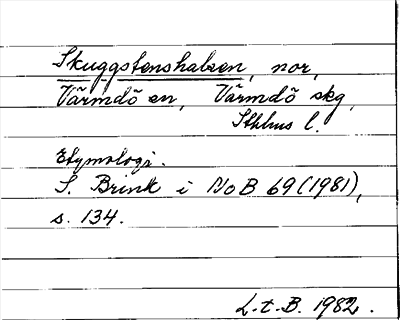 Skuggstenshalsen, nor,
Värmdö en, Värmdö skg,
Sthlms l.
Etymologi.
S. Brink i NoB 69 (1981),
s. 134.
L.t.B. 1982.